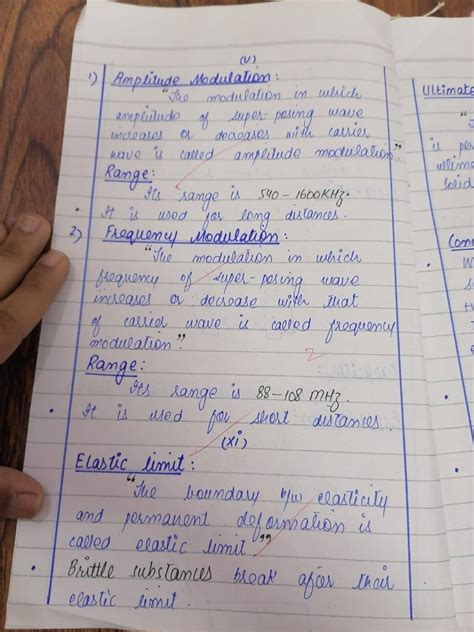 (V)
1) Amplitude Modulation:
"The modulation in which
amplitude of super-posing wave
increases or decreases with carrier
wave is called amplitude modulation."
Range:
Its range is 540-1600KHz.
. It is used for long distances.
2) Frequency Modulation:
"The modulation in which
frequency of super-posing wave
increases or decrease with that
of carrier wave is called frequency
modulation".
2
Range:
Its range is 88-108 MHz.
. It is used for short distances.
(xi)
Elastic limit:
"The boundary b/w elasticity
and permanent deformation is
called elastic limit."
. Brittle substances break after their
elastic limit.
Ultimate
is